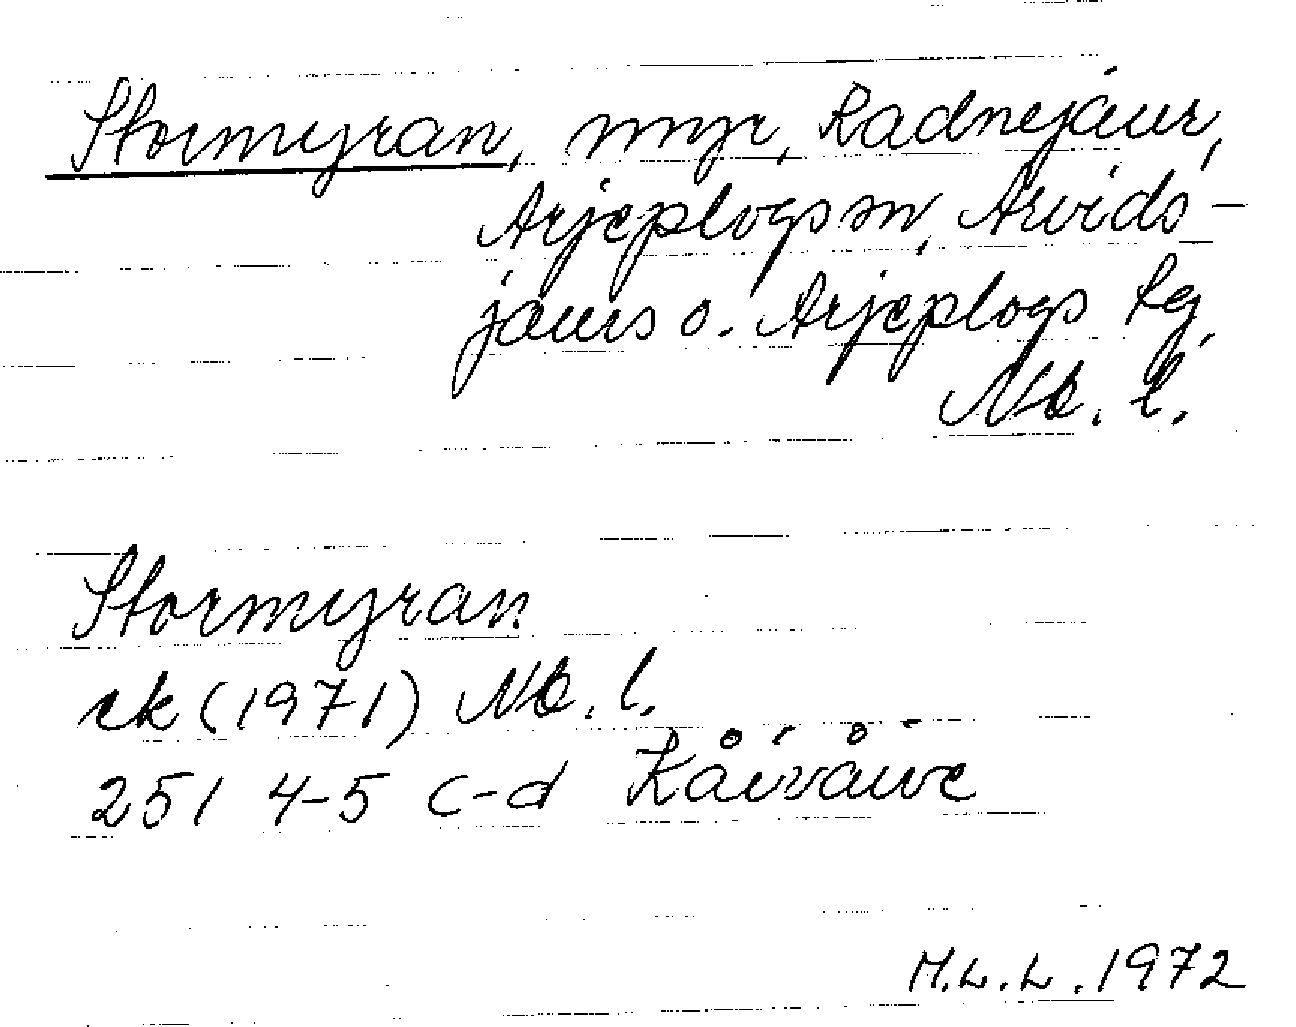 Stormyran, myr, Radnejaur,
Arjeplogs sn, Arvids-
jaurs o. Arjeplogs lg,
Nb. l.
Stormyran
ek (1971) Nb. l.
251 4-5 c-d Kåivåive
M.L.L. 1972